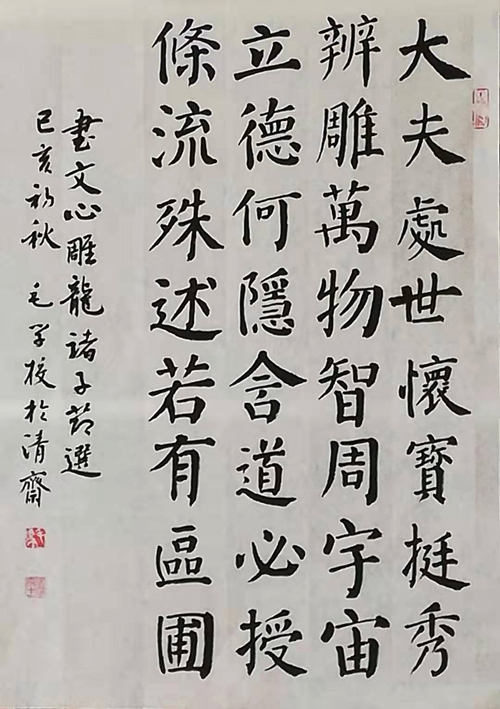 大夫處世懷寶挺秀
辨雕萬物智周宇宙
立德何隱含道必授
條流殊述若有區圃
書文心雕龍諸子節選
己亥初秋 毛学校於清齋